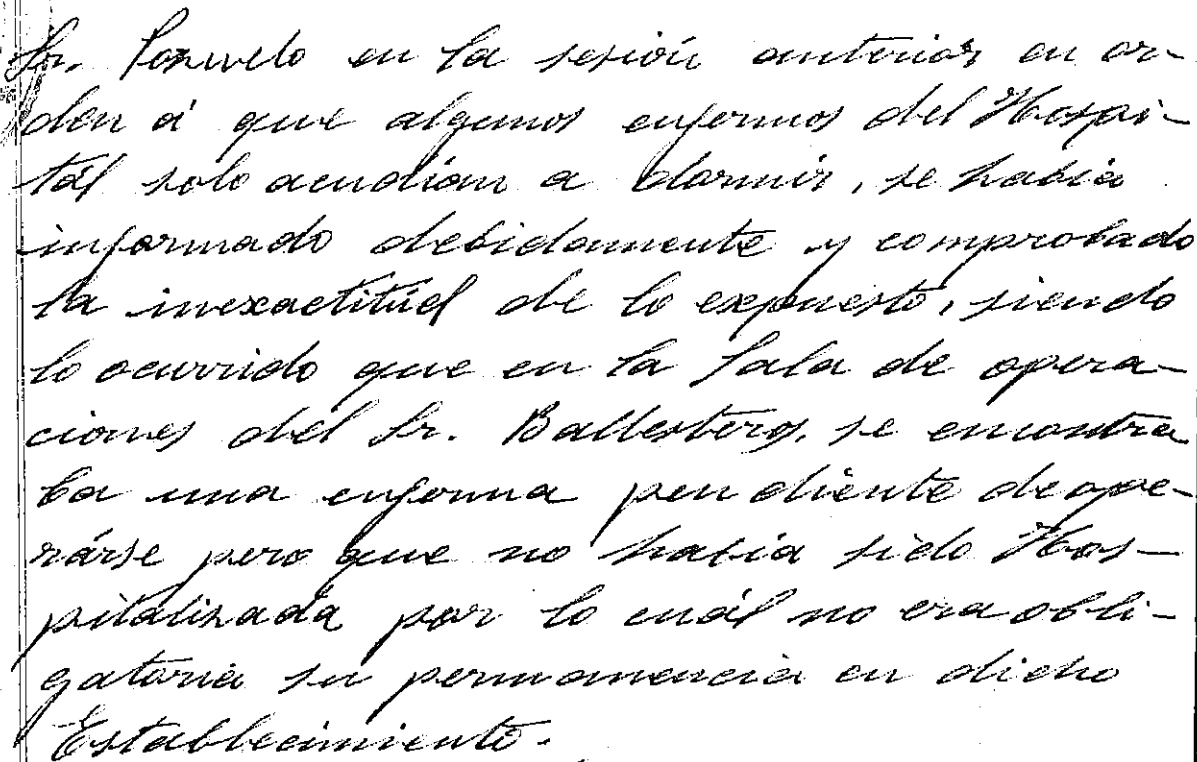 Sr. Pozuelo en la sesión anterior en or-
den á que algunos enfermos del Hospi-
tál solo acudían a dormir, se había
informado debidamente y comprobado
la inexactitúd de lo expuesto, siendo
lo ocurrido que en la Sala de opera-
ciones del Sr. Ballesteros, se encontra
ba una enferma pendiente de ope-
rárse pero que no había sido Hos-
pitalizada por lo cuál no era obli-
gatoria su permanencia en dicho
Establecimiento.